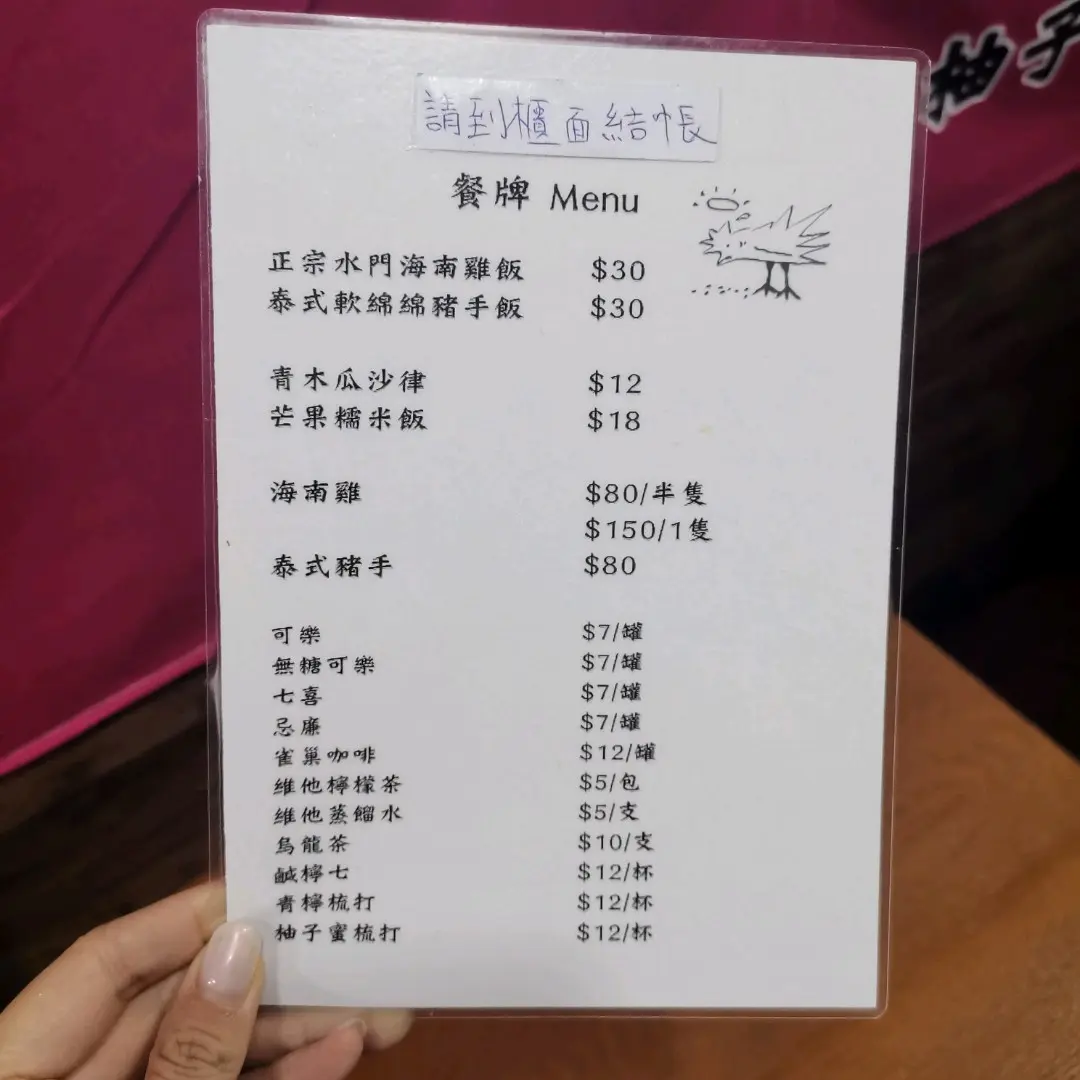 柚子
請到櫃面結帳
餐牌 Menu
正宗水門海南雞飯 $30
泰式軟綿綿豬手飯 $30
青木瓜沙律 $12
芒果糯米飯 $18
海南雞 $80/半隻
$150/1隻
泰式豬手 $80
可樂 $7/罐
無糖可樂 $7/罐
七喜 $7/罐
忌廉 $7/罐
雀巢咖啡 $12/罐
維他檸檬茶 $5/包
維他蒸餾水 $5/支
烏龍茶 $10/支
鹹檸七 $12/杯
青檸梳打 $12/杯
柚子蜜梳打 $12/杯